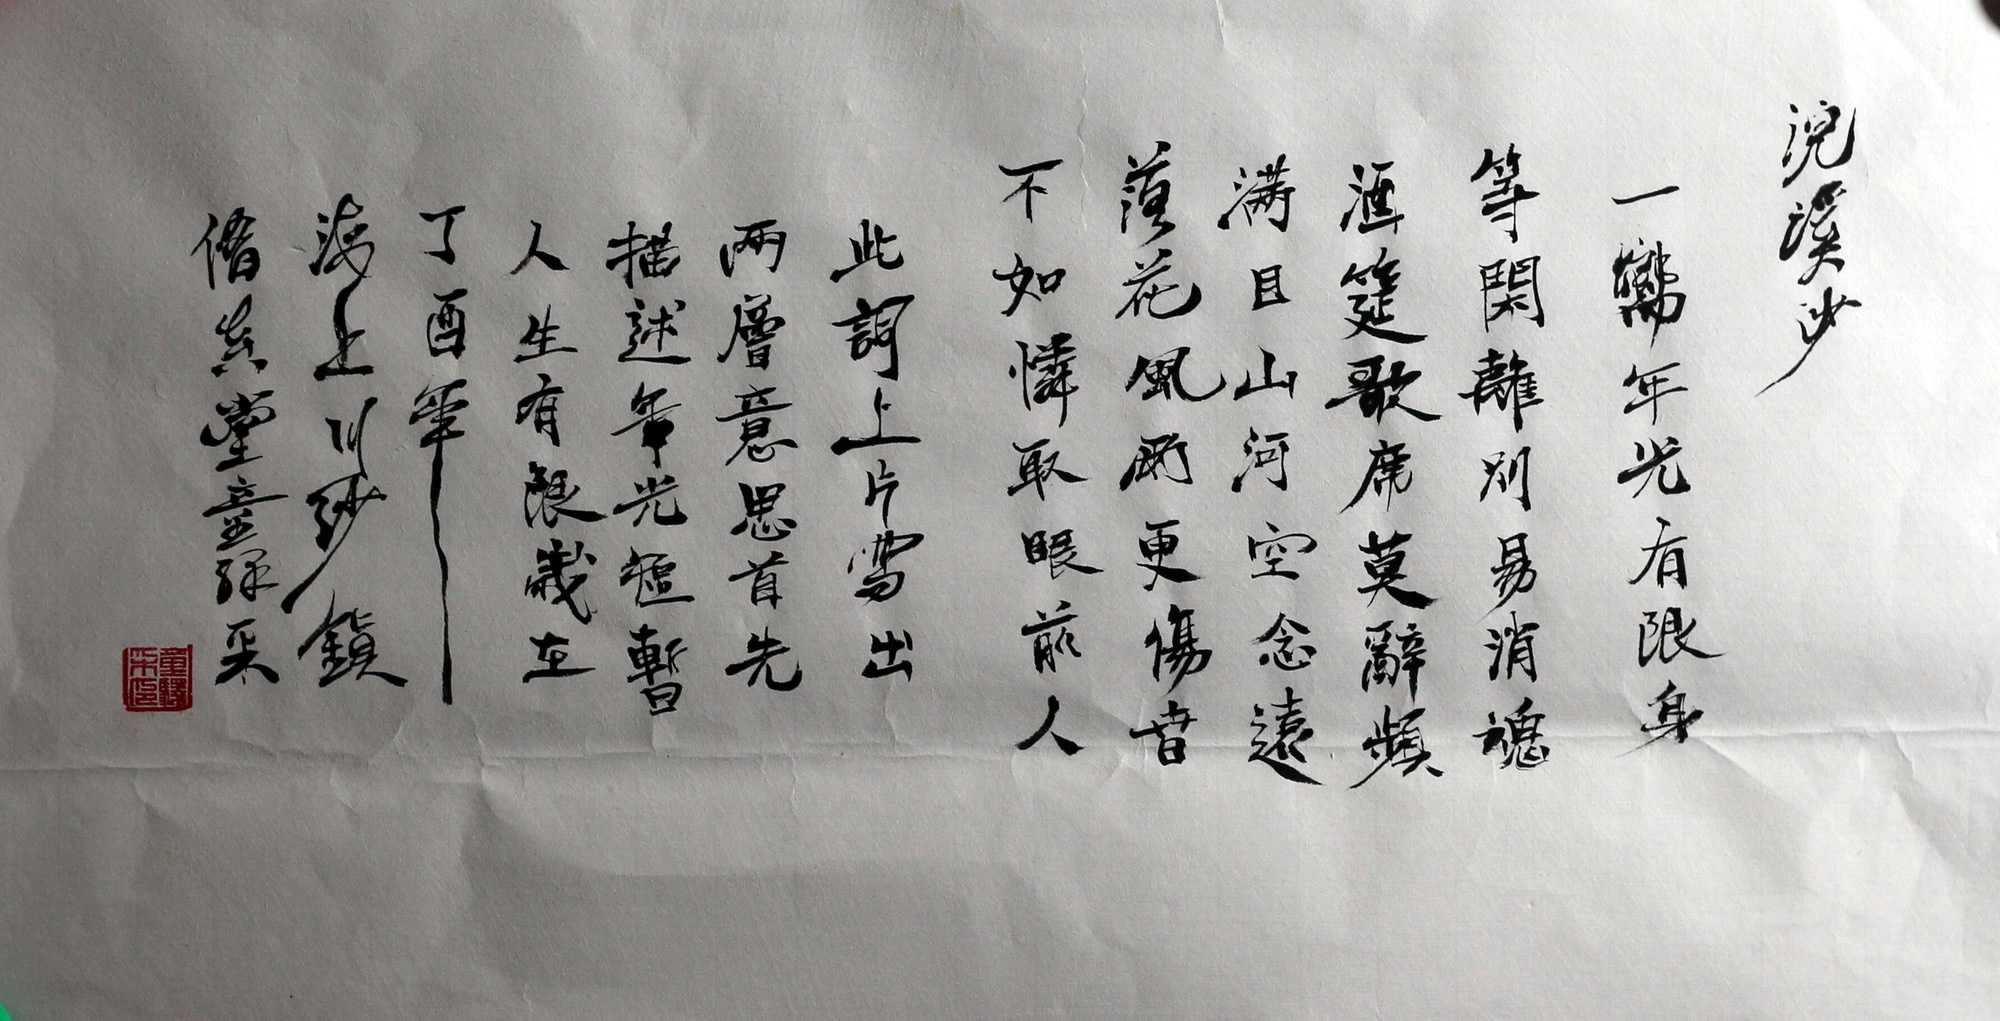 浣溪沙
一嚮年光有限身
等閑離別易消魂
酒筵歌席莫辭頻
满目山河空念遠
落花風雨更傷春
不如憐取眼前人
此詞上片寫出
兩層意思首先
描述年光短暫
人生有限歲在
丁酉年
海上川沙鎮
脩真堂童驛采
童驛采印